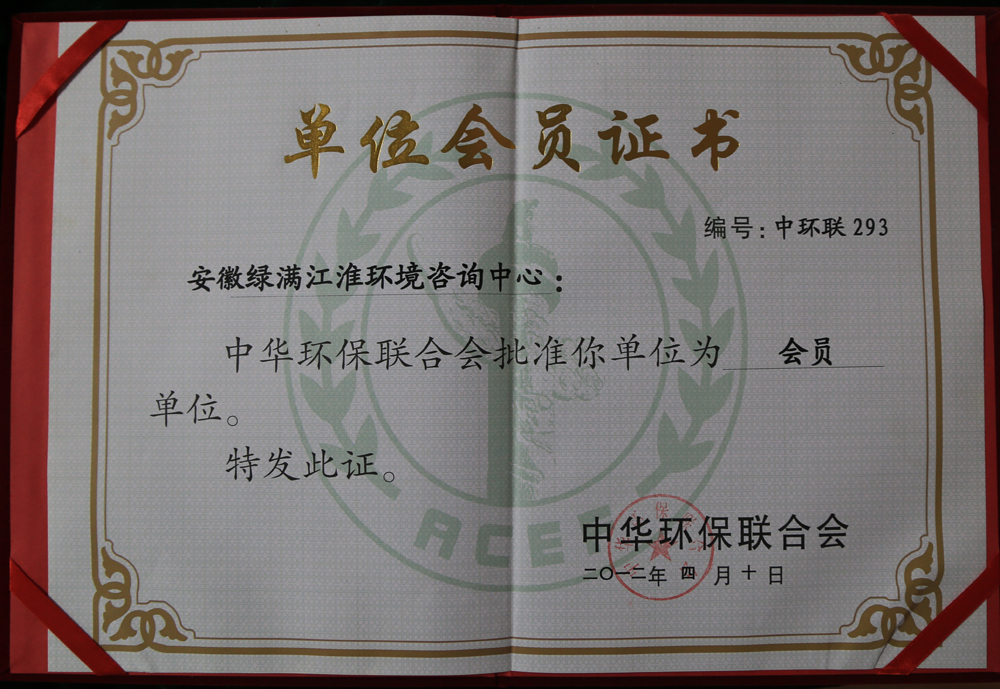 单位会员证书
编号：中环联 293
安徽绿满江淮环境咨询中心：
中华环保联合会批准你单位为 会员
单位。
特发此证。
ACEF
中华环保联合会
二〇一二年 四 月 十 日